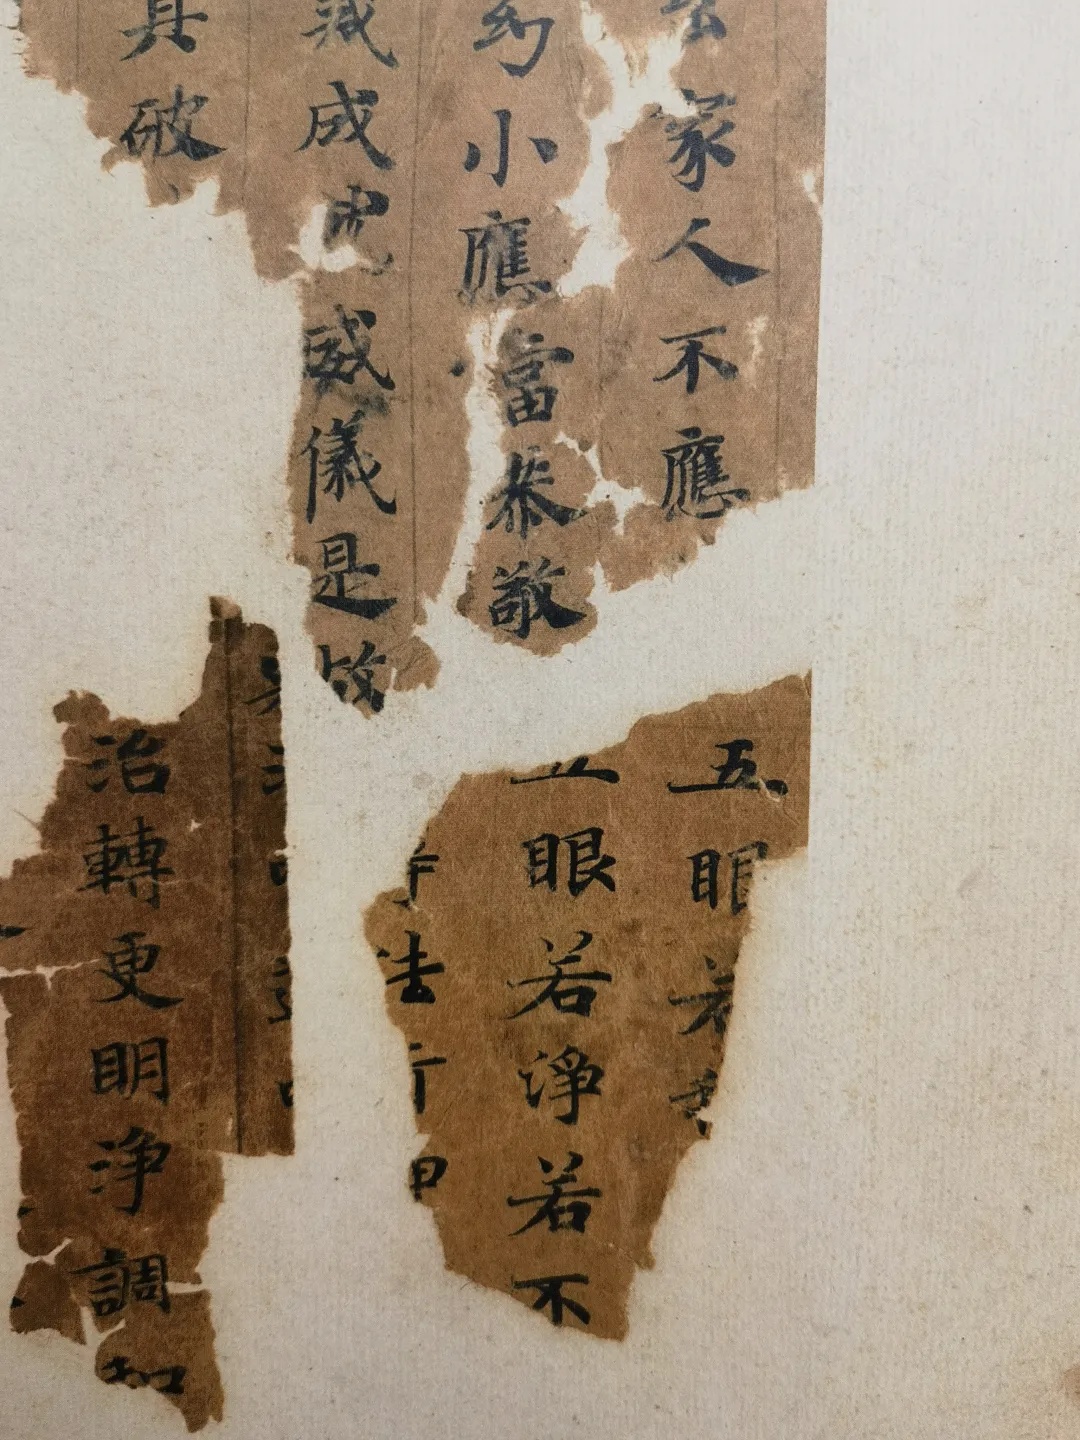 家人不應
幼小應當恭敬
戒成就威儀是故
具破
五眼
五眼若淨若不
法行
治轉更明淨調